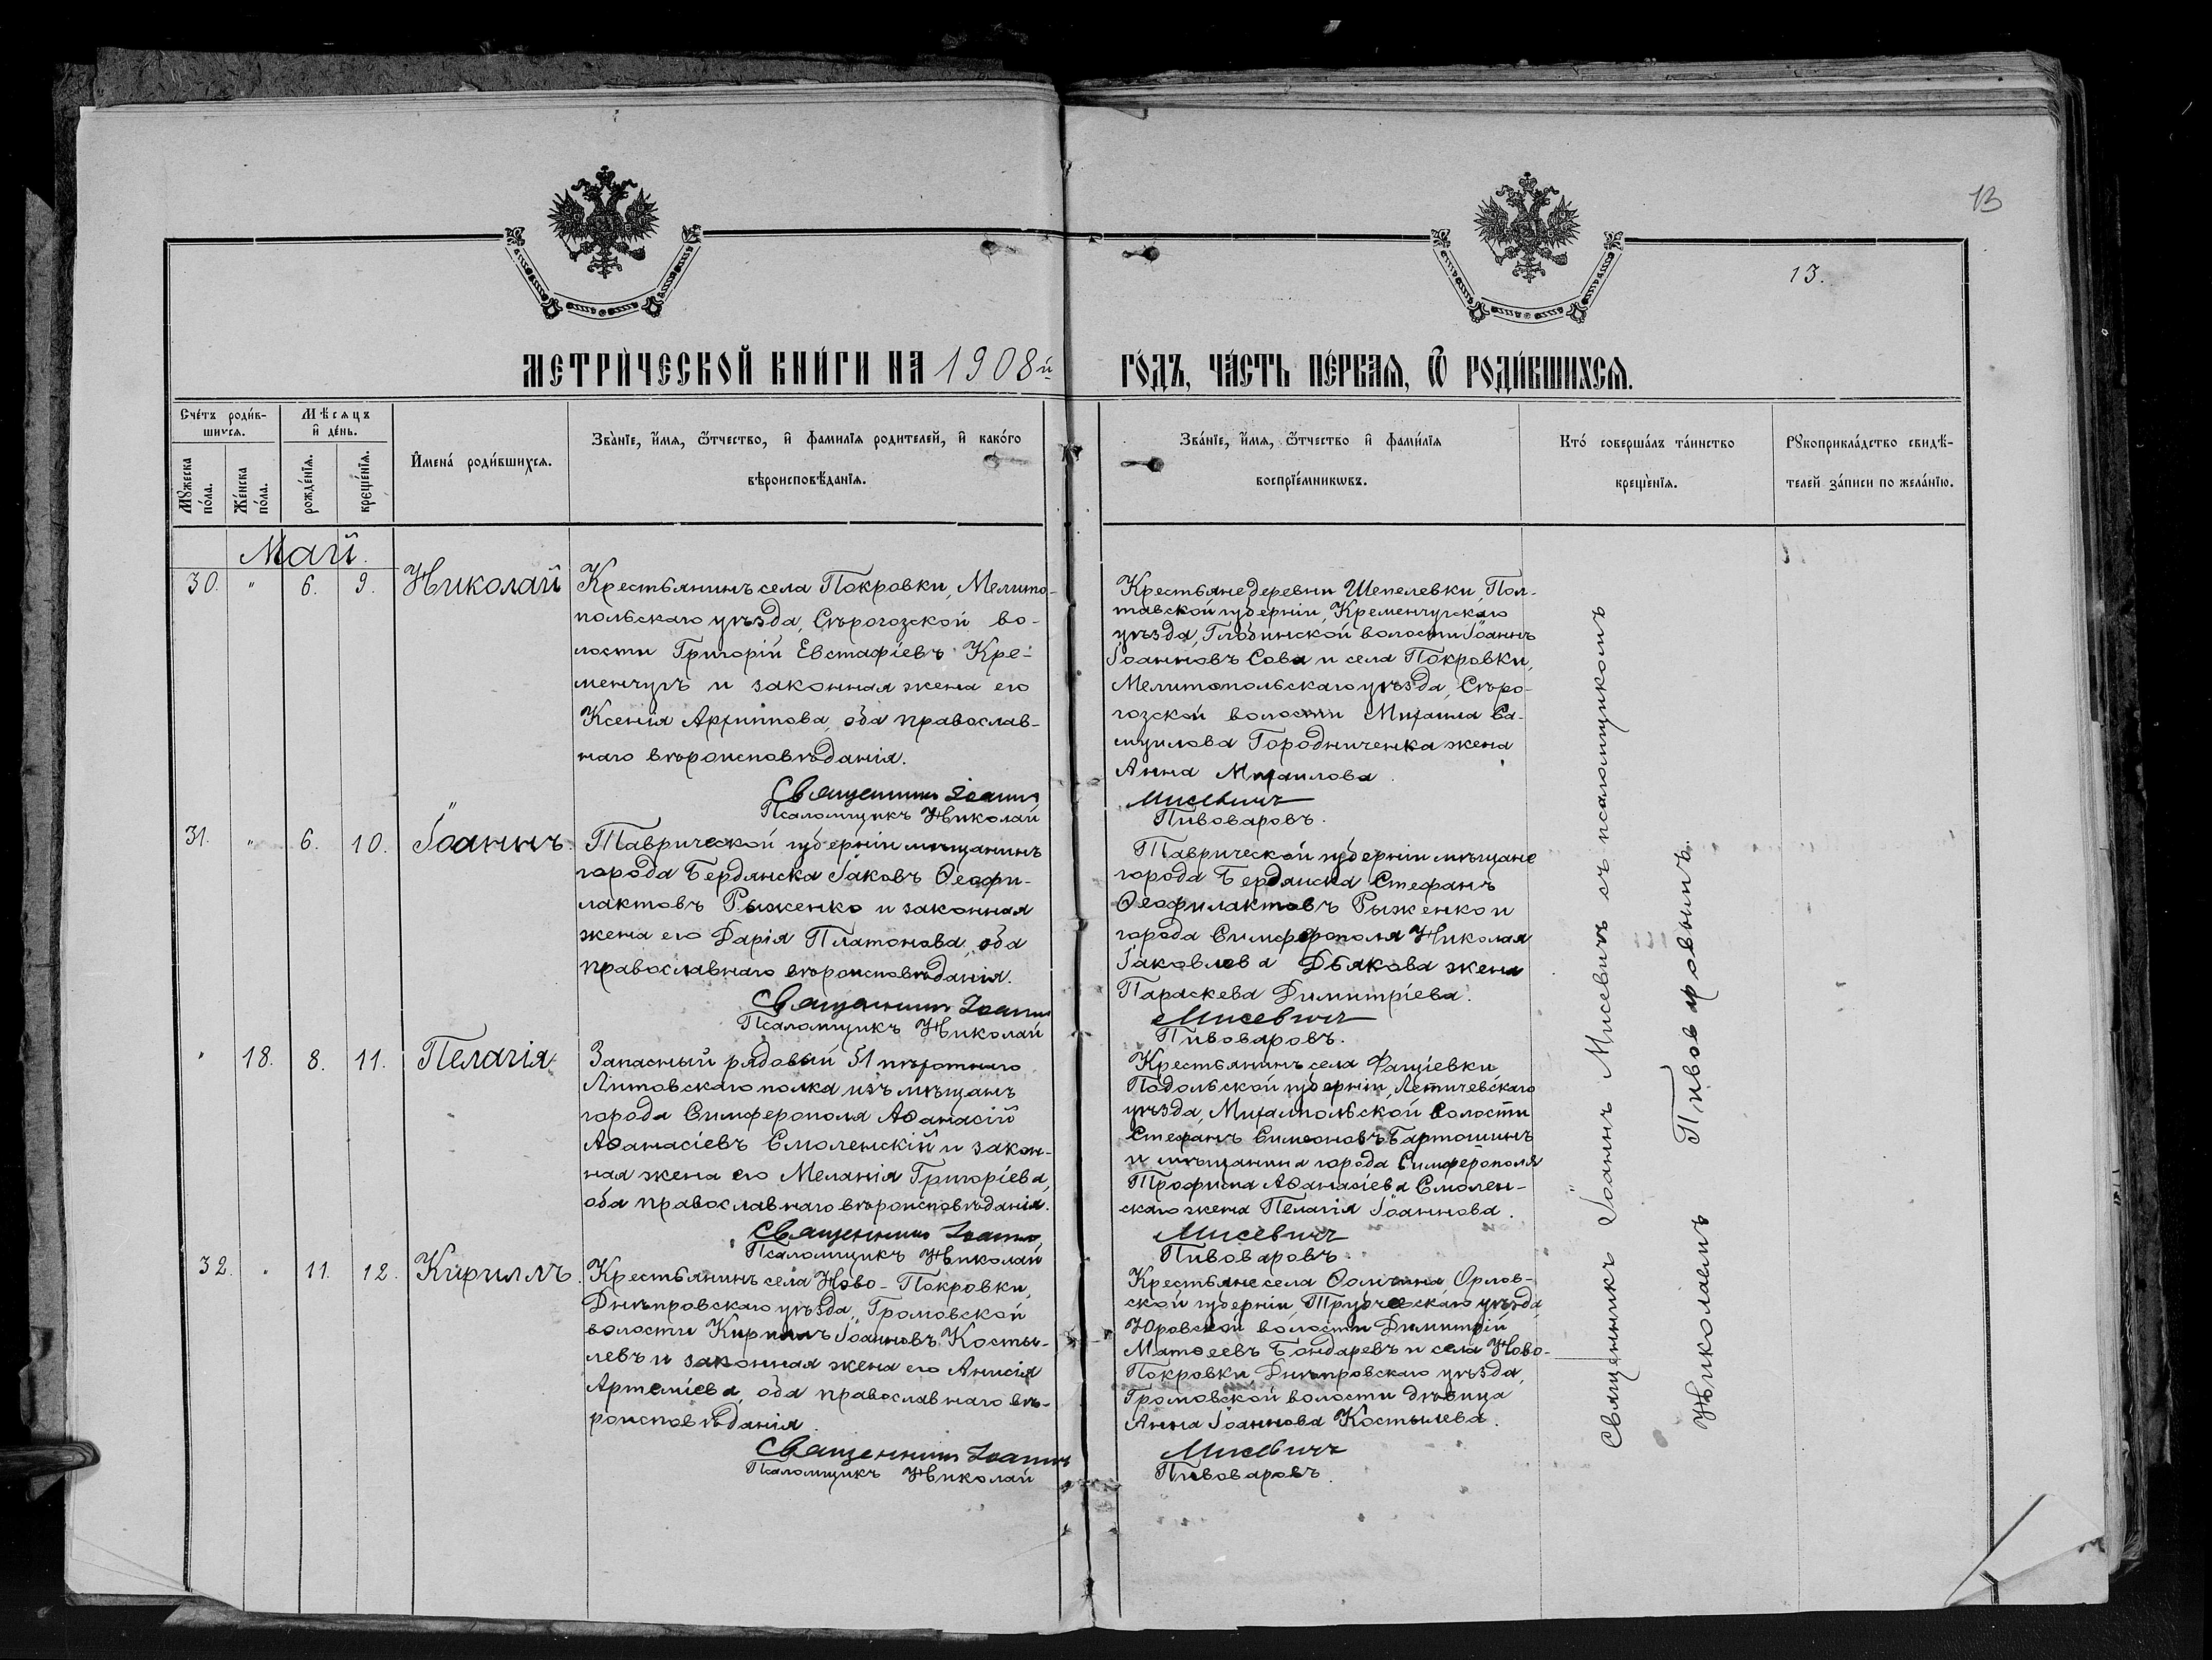 13
13.
МЕТРИ́ЧЕСКОЙ КНИ́ГИ НА 1908й ГО́ДЪ, ЧА́СТЬ ПЕ́РВАѦ, Ѿ РОДИ́ВШИХСѦ.
Сче́тъ роди́в-
шихсѧ.
Мѣсяцъ
и҆ де́нь.
Мꙋжеска по́ла.
Же́нска по́ла.
рожде́нїѧ.
креще́нїѧ.
И҆мена́ роди́вшихсѧ.
Зва́нїе, и҆́мѧ, ѻ҆́тчество, и҆ фамилїѧ родителей, и҆ како́го
вѣроисповѣ́данїѧ.
Зва́нїе, и҆́мѧ, ѻ҆́тчество и҆ фами́лїѧ
воспрїе́мникѡвъ.
Кто́ соверша́лъ та́инство
креще́нїѧ.
Рꙋкоприкла́дство свидѣ́-
телей за́писи по жела́нїю.
Май.
30. " 6. 9. Николай
Крестьянинъ села Покровки, Мелито-
польскаго уѣзда, Сѣрогозской во-
лости Григорій Евстафіевъ Кре-
менчугъ и законная жена его
Ксенія Архиппова, оба православ-
наго вѣроисповѣданія.
Священникъ Іоаннъ
Псаломщикъ Николай
Крестьяне деревни Шепелевки, Пол-
тавской губерніи, Кременчугскаго
уѣзда, Глобинской волости Іоаннъ
Іоанновъ Сова и села Покровки,
Мелитопольскаго уѣзда, Сѣро-
гозской волости Михаила Са-
муилова Городниченка жена
Анна Михаилова.
Мисевичъ
Пивоваровъ.
31. " 6. 10. Іоаннъ.
Таврической губерніи мѣщанинъ
города Бердянска Іаковъ Ѳеофи-
лактовъ Рыженко и законная
жена его Дарія Платонова, оба
православнаго вѣроисповѣданія.
Священникъ Іоаннъ
Псаломщикъ Николай
Таврической губерніи мѣщане
города Бердянска Стефанъ
Ѳеофилактовъ Рыженко и
города Симферополя Николая
Іаковлева Дьякова жена
Параскева Димитріева.
Мисевичъ
Пивоваровъ.
" 18. 8. 11. Пелагія
Запасный рядовый 51 пѣхотнаго
Литовскаго полка изъ мѣщанъ
города Симферополя Аѳанасій
Аѳанасіевъ Смоленскій и закон-
ная жена его Меланія Григоріева,
оба православнаго вѣроисповѣданія.
Священникъ Іоаннъ
Псаломщикъ Николай
Крестьянинъ села Фащіевки,
Подольской губерніи, Летичевскаго
уѣзда, Михалпольской волости
Стефанъ Симеоновъ Бартошинъ
и мѣщанина города Симферополя
Трофима Аѳанасіева Смолен-
скаго жена Пелагія Іоаннова.
Мисевичъ
Пивоваровъ
32. " 11. 12. Кириллъ.
Крестьянинъ села Ново-Покровки,
Днѣпровскаго уѣзда, Громовской
волости Кириллъ Іоанновъ Косты-
левъ и законная жена его Анисія
Артеміева, оба православнаго вѣ-
роисповѣданія.
Священникъ Іоаннъ
Псаломщикъ Николай
Крестьяне села Орлов-
ской губерніи, Трубчевскаго уѣзда,
Юровской волости Димитрій
Матѳеевъ Бондаревъ и села Ново-
Покровки, Днѣпровскаго уѣзда,
Громовской волости дѣвица
Анна Іоаннова Костылева.
Мисевичъ
Пивоваровъ.
Священникъ Іоаннъ Мисевичъ съ псаломщикомъ
Николаемъ Пивоваровымъ.